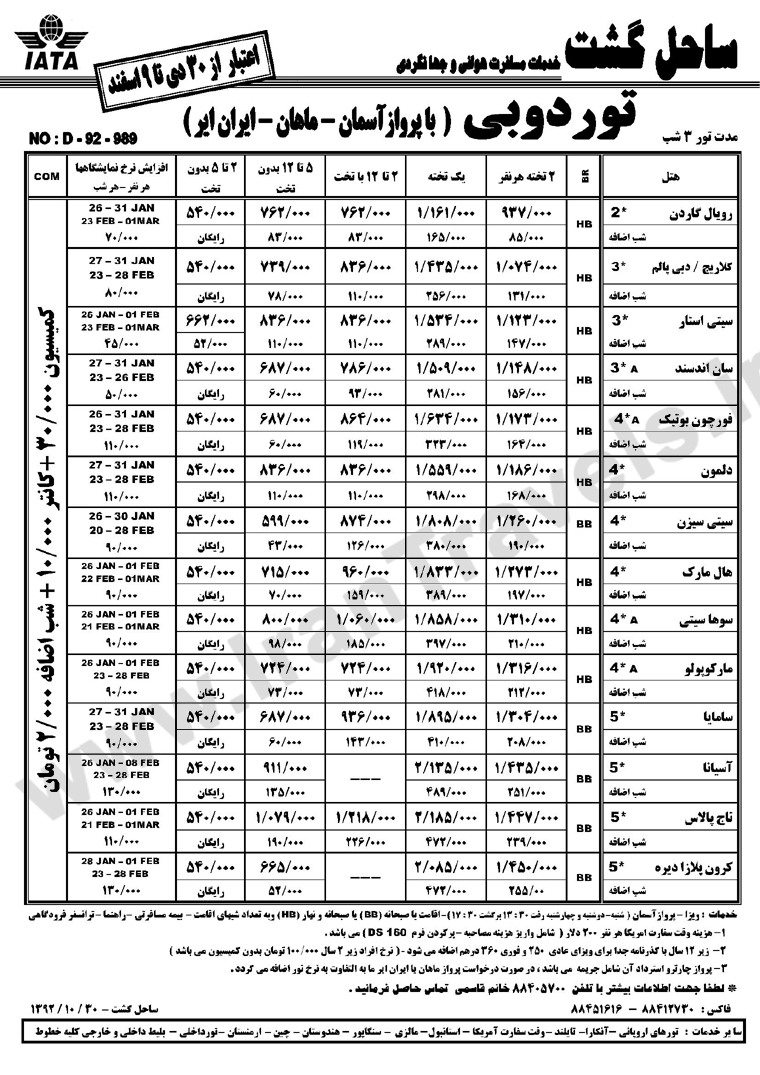 IATA
ساحل گشت
خدمات مسافرت هوائی و جهانگردی
اعتبار از ۳۰ دی تا ۹ اسفند
تور دوبی ( با پرواز آسمان – ماهان – ایران ایر )
مدت تور ۳ شب
NO : D - 92 - 989
هتل BR ۲ تخته هرنفر یک تخته ۲ تا ۱۲ با تخت ۵ تا ۱۲ بدون تخت ۲ تا ۵ بدون تخت افزایش نرخ نمایشگاهها هر نفر – هر شب COM
رویال گاردن 2* HB ۹۳۷/۰۰۰ ۱/۱۶۱/۰۰۰ ۷۶۲/۰۰۰ ۷۶۲/۰۰۰ ۵۴۰/۰۰۰ 26 – 31 JAN 23 FEB – 01MAR
شب اضافه ۸۵/۰۰۰ ۱۶۵/۰۰۰ ۸۳/۰۰۰ ۸۳/۰۰۰ رایگان ۷۰/۰۰۰
کلاریج / دبی پالم 3* HB ۱/۰۷۴/۰۰۰ ۱/۴۳۵/۰۰۰ ۸۳۶/۰۰۰ ۷۳۹/۰۰۰ ۵۴۰/۰۰۰ 27 – 31 JAN 23 – 28 FEB
شب اضافه ۱۳۱/۰۰۰ ۲۵۶/۰۰۰ ۱۱۰/۰۰۰ ۷۸/۰۰۰ رایگان ۸۰/۰۰۰
سیتی استار 3* HB ۱/۱۲۳/۰۰۰ ۱/۵۳۴/۰۰۰ ۸۳۶/۰۰۰ ۸۳۶/۰۰۰ ۶۶۲/۰۰۰ 26 JAN – 01 FEB 23 FEB – 01MAR
شب اضافه ۱۴۷/۰۰۰ ۲۸۹/۰۰۰ ۱۱۰/۰۰۰ ۱۱۰/۰۰۰ ۵۲/۰۰۰ ۴۵/۰۰۰
سان اندسند 3* A HB ۱/۱۴۸/۰۰۰ ۱/۵۰۹/۰۰۰ ۷۸۶/۰۰۰ ۶۸۷/۰۰۰ ۵۴۰/۰۰۰ 27 – 31 JAN 23 – 26 FEB
شب اضافه ۱۵۶/۰۰۰ ۲۸۱/۰۰۰ ۹۳/۰۰۰ ۶۰/۰۰۰ رایگان ۵۰/۰۰۰
فورچون بوتیک 4*A HB ۱/۱۷۳/۰۰۰ ۱/۶۳۴/۰۰۰ ۸۶۴/۰۰۰ ۶۸۷/۰۰۰ ۵۴۰/۰۰۰ 26 – 31 JAN 23 – 28 FEB
شب اضافه ۱۶۴/۰۰۰ ۳۲۳/۰۰۰ ۱۱۹/۰۰۰ ۶۰/۰۰۰ رایگان ۱۱۰/۰۰۰
دلمون 4* HB ۱/۱۸۶/۰۰۰ ۱/۵۵۹/۰۰۰ ۸۳۶/۰۰۰ ۸۳۶/۰۰۰ ۵۴۰/۰۰۰ 27 – 31 JAN 23 – 28 FEB
شب اضافه ۱۶۸/۰۰۰ ۲۹۸/۰۰۰ ۱۱۰/۰۰۰ ۱۱۰/۰۰۰ رایگان ۱۱۰/۰۰۰
سیتی سیزن 4* BB ۱/۲۶۰/۰۰۰ ۱/۸۰۸/۰۰۰ ۸۷۴/۰۰۰ ۵۹۹/۰۰۰ ۵۴۰/۰۰۰ 26 – 30 JAN 20 – 28 FEB
شب اضافه ۱۹۰/۰۰۰ ۳۸۰/۰۰۰ ۱۲۶/۰۰۰ ۴۳/۰۰۰ رایگان ۹۰/۰۰۰
هال مارک 4* HB ۱/۲۷۳/۰۰۰ ۱/۸۳۳/۰۰۰ ۹۶۰/۰۰۰ ۷۱۵/۰۰۰ ۵۴۰/۰۰۰ 26 JAN – 01 FEB 22 FEB – 01MAR
شب اضافه ۱۹۷/۰۰۰ ۳۸۹/۰۰۰ ۱۵۹/۰۰۰ ۷۰/۰۰۰ رایگان ۹۰/۰۰۰
سوها سیتی 4* A HB ۱/۳۱۰/۰۰۰ ۱/۸۵۸/۰۰۰ ۱/۰۶۰/۰۰۰ ۸۰۰/۰۰۰ ۵۴۰/۰۰۰ 26 JAN – 01 FEB 21 FEB – 01MAR
شب اضافه ۲۱۰/۰۰۰ ۳۹۷/۰۰۰ ۱۸۵/۰۰۰ ۹۸/۰۰۰ رایگان ۹۰/۰۰۰
مارکوپولو 4* A HB ۱/۳۱۶/۰۰۰ ۱/۹۲۰/۰۰۰ ۷۲۴/۰۰۰ ۷۲۴/۰۰۰ ۵۴۰/۰۰۰ 26 JAN – 01 FEB 23 – 28 FEB
شب اضافه ۲۱۲/۰۰۰ ۴۱۸/۰۰۰ ۷۳/۰۰۰ ۷۳/۰۰۰ رایگان ۹۰/۰۰۰
سامایا 5* BB ۱/۳۰۴/۰۰۰ ۱/۸۹۵/۰۰۰ ۹۳۶/۰۰۰ ۶۸۷/۰۰۰ ۵۴۰/۰۰۰ 27 – 31 JAN 23 – 28 FEB
شب اضافه ۲۰۸/۰۰۰ ۴۱۰/۰۰۰ ۱۴۳/۰۰۰ ۶۰/۰۰۰ رایگان ۹۰/۰۰۰
آسیانا 5* BB ۱/۴۳۵/۰۰۰ ۲/۱۳۵/۰۰۰ ––– ۹۱۱/۰۰۰ ۵۴۰/۰۰۰ 26 JAN – 08 FEB 23 – 28 FEB
شب اضافه ۲۵۱/۰۰۰ ۴۸۹/۰۰۰ ۱۳۵/۰۰۰ رایگان ۱۳۰/۰۰۰
تاج پالاس 5* BB ۱/۴۴۷/۰۰۰ ۲/۱۸۵/۰۰۰ ۱/۲۱۸/۰۰۰ ۱/۰۷۹/۰۰۰ ۵۴۰/۰۰۰ 26 JAN – 01 FEB 21 FEB – 01MAR
شب اضافه ۲۳۹/۰۰۰ ۴۷۲/۰۰۰ ۲۲۶/۰۰۰ ۱۹۰/۰۰۰ رایگان ۱۱۰/۰۰۰
کرون پلازا دیره 5* BB ۱/۴۵۰/۰۰۰ ۲/۰۸۵/۰۰۰ ––– ۶۶۵/۰۰۰ ۵۴۰/۰۰۰ 28 JAN – 01 FEB 23 – 28 FEB
شب اضافه ۲۵۵/۰۰ ۴۷۲/۰۰۰ ۵۲/۰۰۰ رایگان ۱۳۰/۰۰۰
کمیسیون ۳۰/۰۰۰ + کانتر ۱۰/۰۰۰ + شب اضافه ۲/۰۰۰ تومان
خدمات : ویزا – پرواز آسمان ( شنبه-دوشنبه و چهارشنبه رفت ۳۰ : ۱۳ برگشت ۳۰ : ۱۷)- اقامت با صبحانه (BB) یا صبحانه و نهار (HB) وبه تعداد شبهای اقامت – بیمه مسافرتی – راهنما – ترانسفر فرودگاهی
۱- هزینه وقت سفارت امریکا هر نفر ۲۰۰ دلار ( شامل واریز هزینه مصاحبه – پرکردن فرم DS 160 ) می باشد .
۲- زیر ۱۲ سال با گذرنامه جدا برای ویزای عادی ۲۵۰ و فوری ۳۶۰ درهم اضافه می شود - ( نرخ افراد زیر ۲ سال ۱۰۰/۰۰۰ تومان بدون کمیسیون می باشد )
۳- پرواز چارتر و استرداد آن شامل جریمه می باشد ، در صورت درخواست پرواز ماهان یا ایران ایر ما به التفاوت به نرخ تور اضافه می گردد .
* لطفا جهت اطلاعات بیشتر با تلفن ۸۸۴۰۵۷۰۰ خانم قاسمی تماس حاصل فرمائید .
فاکس : ۸۸۴۱۲۷۳۰ – ۸۸۴۵۱۶۱۶ ساحل گشت – ۳۰ / ۱۰ / ۱۳۹۲
سایر خدمات : تورهای اروپائی – آنکارا- تایلند – وقت سفارت آمریکا – استانبول– مالزی – سنگاپور – هندوستان – چین – ارمنستان – تورداخلی – بلیط داخلی و خارجی کلیه خطوط
www.IranTravels.ir